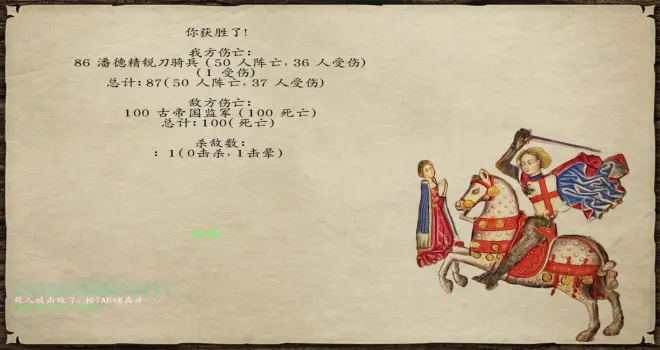 你获胜了!
我方伤亡:
86 潘德精锐刀骑兵 (50 人阵亡,36 人受伤)
(1 受伤)
总计:87(50 人阵亡,37 人受伤)
敌方伤亡:
100 古帝国监军 (100 死亡)
总计:100(死亡)
杀敌数:
: 1(0击杀,1击晕)
敌人被击败了,按TAB键离开....